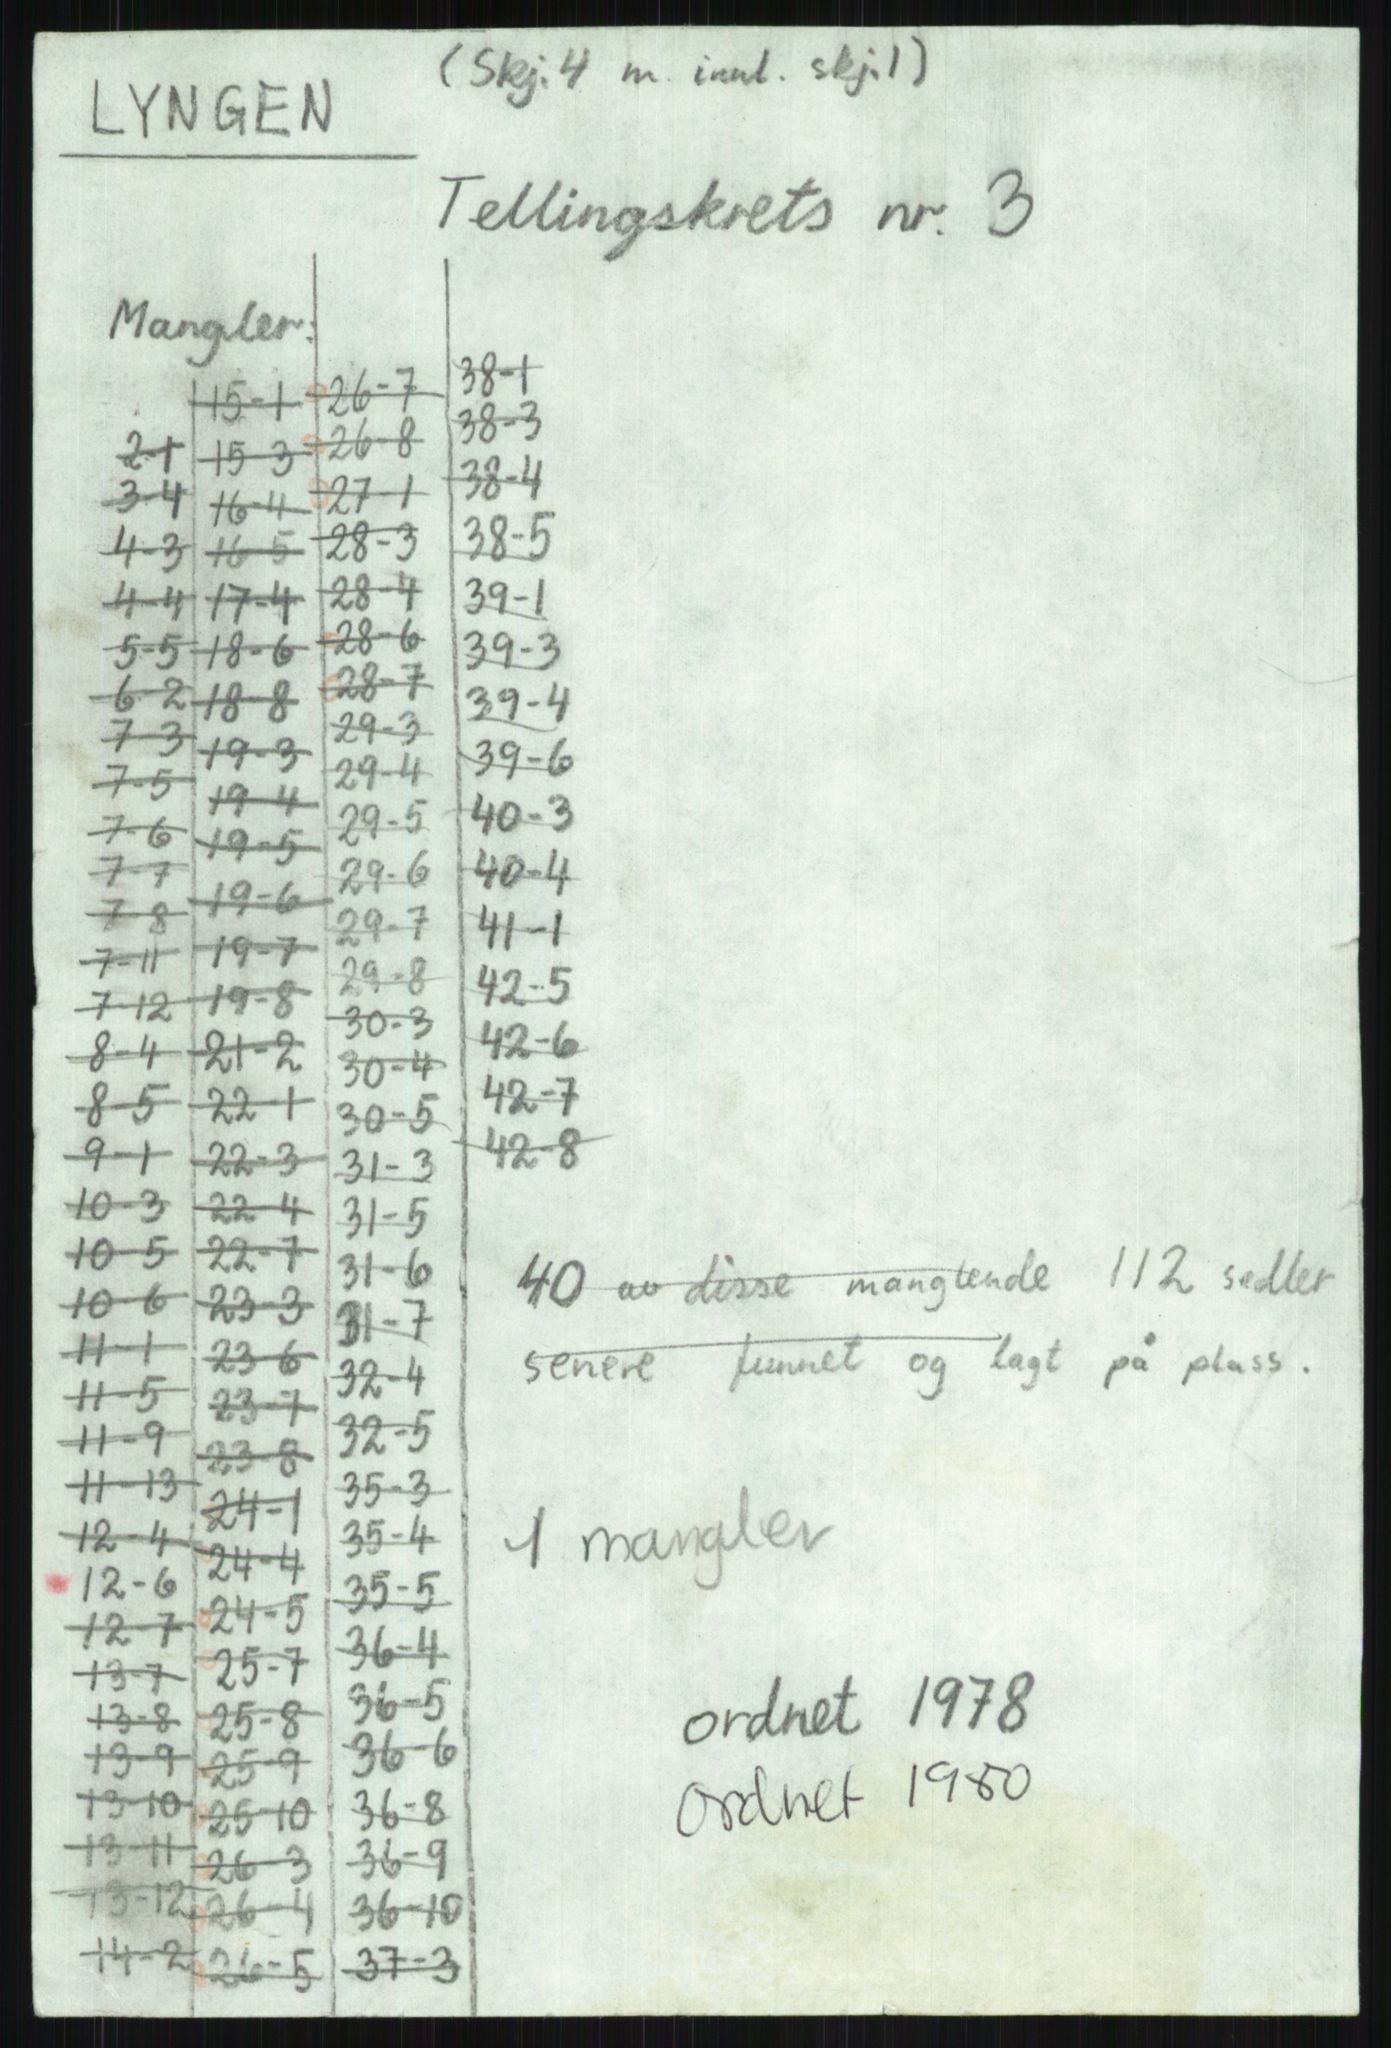 (Skj. 4 m. innl. skj. 1)
LYNGEN
Tellingskrets nr. 3
Mangler:
2-1
3-4
4-3
4-4
5-5
6-2
7-3
7-5
7-6
7-7
7-8
7-11
7-12
8-4
8-5
9-1
10-3
10-5
10-6
11-1
11-5
11-9
11-13
12-4
12-6
12-7
13-7
13-8
13-9
13-10
13-11
13-12
14-2
15-1
15-3
16-4
16-5
17-4
18-6
18-8
19-3
19-4
19-5
19-6
19-7
19-8
21-2
22-1
22-3
22-4
22-7
23-3
23-6
23-7
23-8
24-1
24-4
24-5
25-7
25-8
25-9
25-10
26-3
26-4
26-5
26-7
26-8
27-1
28-3
28-4
28-6
28-7
29-3
29-4
29-5
29-6
29-7
29-8
30-3
30-4
30-5
31-3
31-5
31-6
31-7
32-4
32-5
35-3
35-4
35-5
36-4
36-5
36-6
36-8
36-9
36-10
37-3
38-1
38-3
38-4
38-5
39-1
39-3
39-4
39-6
40-3
40-4
41-1
42-5
42-6
42-7
42-8
40 av disse manglende 112 sedler
senere funnet og lagt på plass.
1 mangler
ordnet 1978
Ordnet 1980